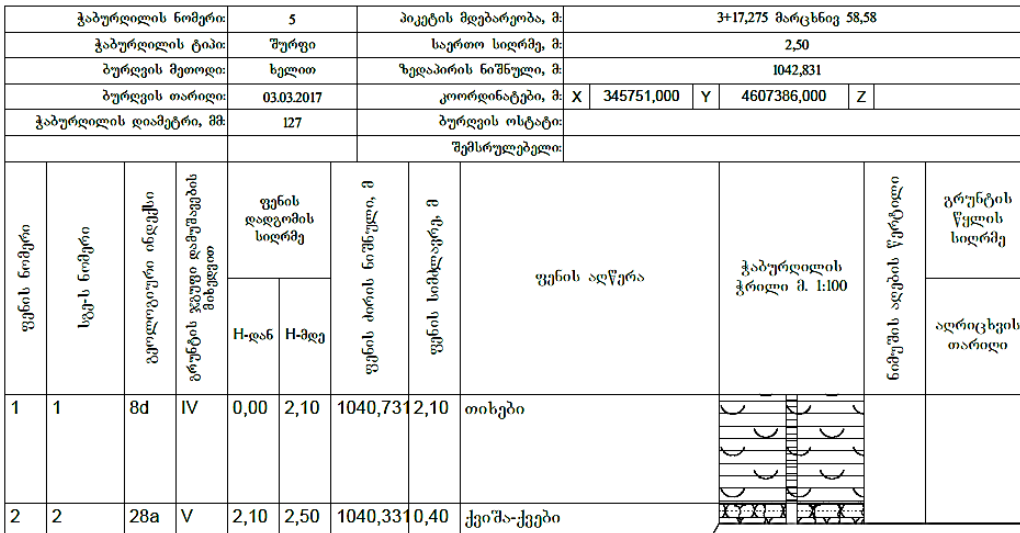 ჭაბურღილის ნომერი: 5 პიკეტის მდებარეობა, მ: 3+17,275 მარცხნივ 58,58
ჭაბურღილის ტიპი: შურფი საერთო სიღრმე, მ: 2,50
ბურღვის მეთოდი: ხელით ზედაპირის ნიშნული, მ: 1042,831
ბურღვის თარიღი: 03.03.2017 კოორდინატები, მ: X 345751,000 Y 4607386,000 Z
ჭაბურღილის დიამეტრი, მმ: 127 ბურღვის ოსტატი:
შემსრულებელი:
ფენის ნომერი
სგე-ს ნომერი
გეოლოგიური ინდექსი
გრუნტის ჯგუფი დამუშავების
მიხედვით
ფენის
დადგომის
სიღრმე
H-დან H-მდე
ფენის ძირის ნიშნული, მ
ფენის სიმძლავრე, მ
ფენის აღწერა
ჭაბურღილის
ჭრილი მ. 1:100
ნიმუშის აღების წერტილი
გრუნტის
წყლის
სიღრმე
აღრიცხვის
თარიღი
1 1 8d IV 0,00 2,10 1040,731 2,10 თიხები
2 2 28a V 2,10 2,50 1040,331 0,40 ქვიშა-ქვები